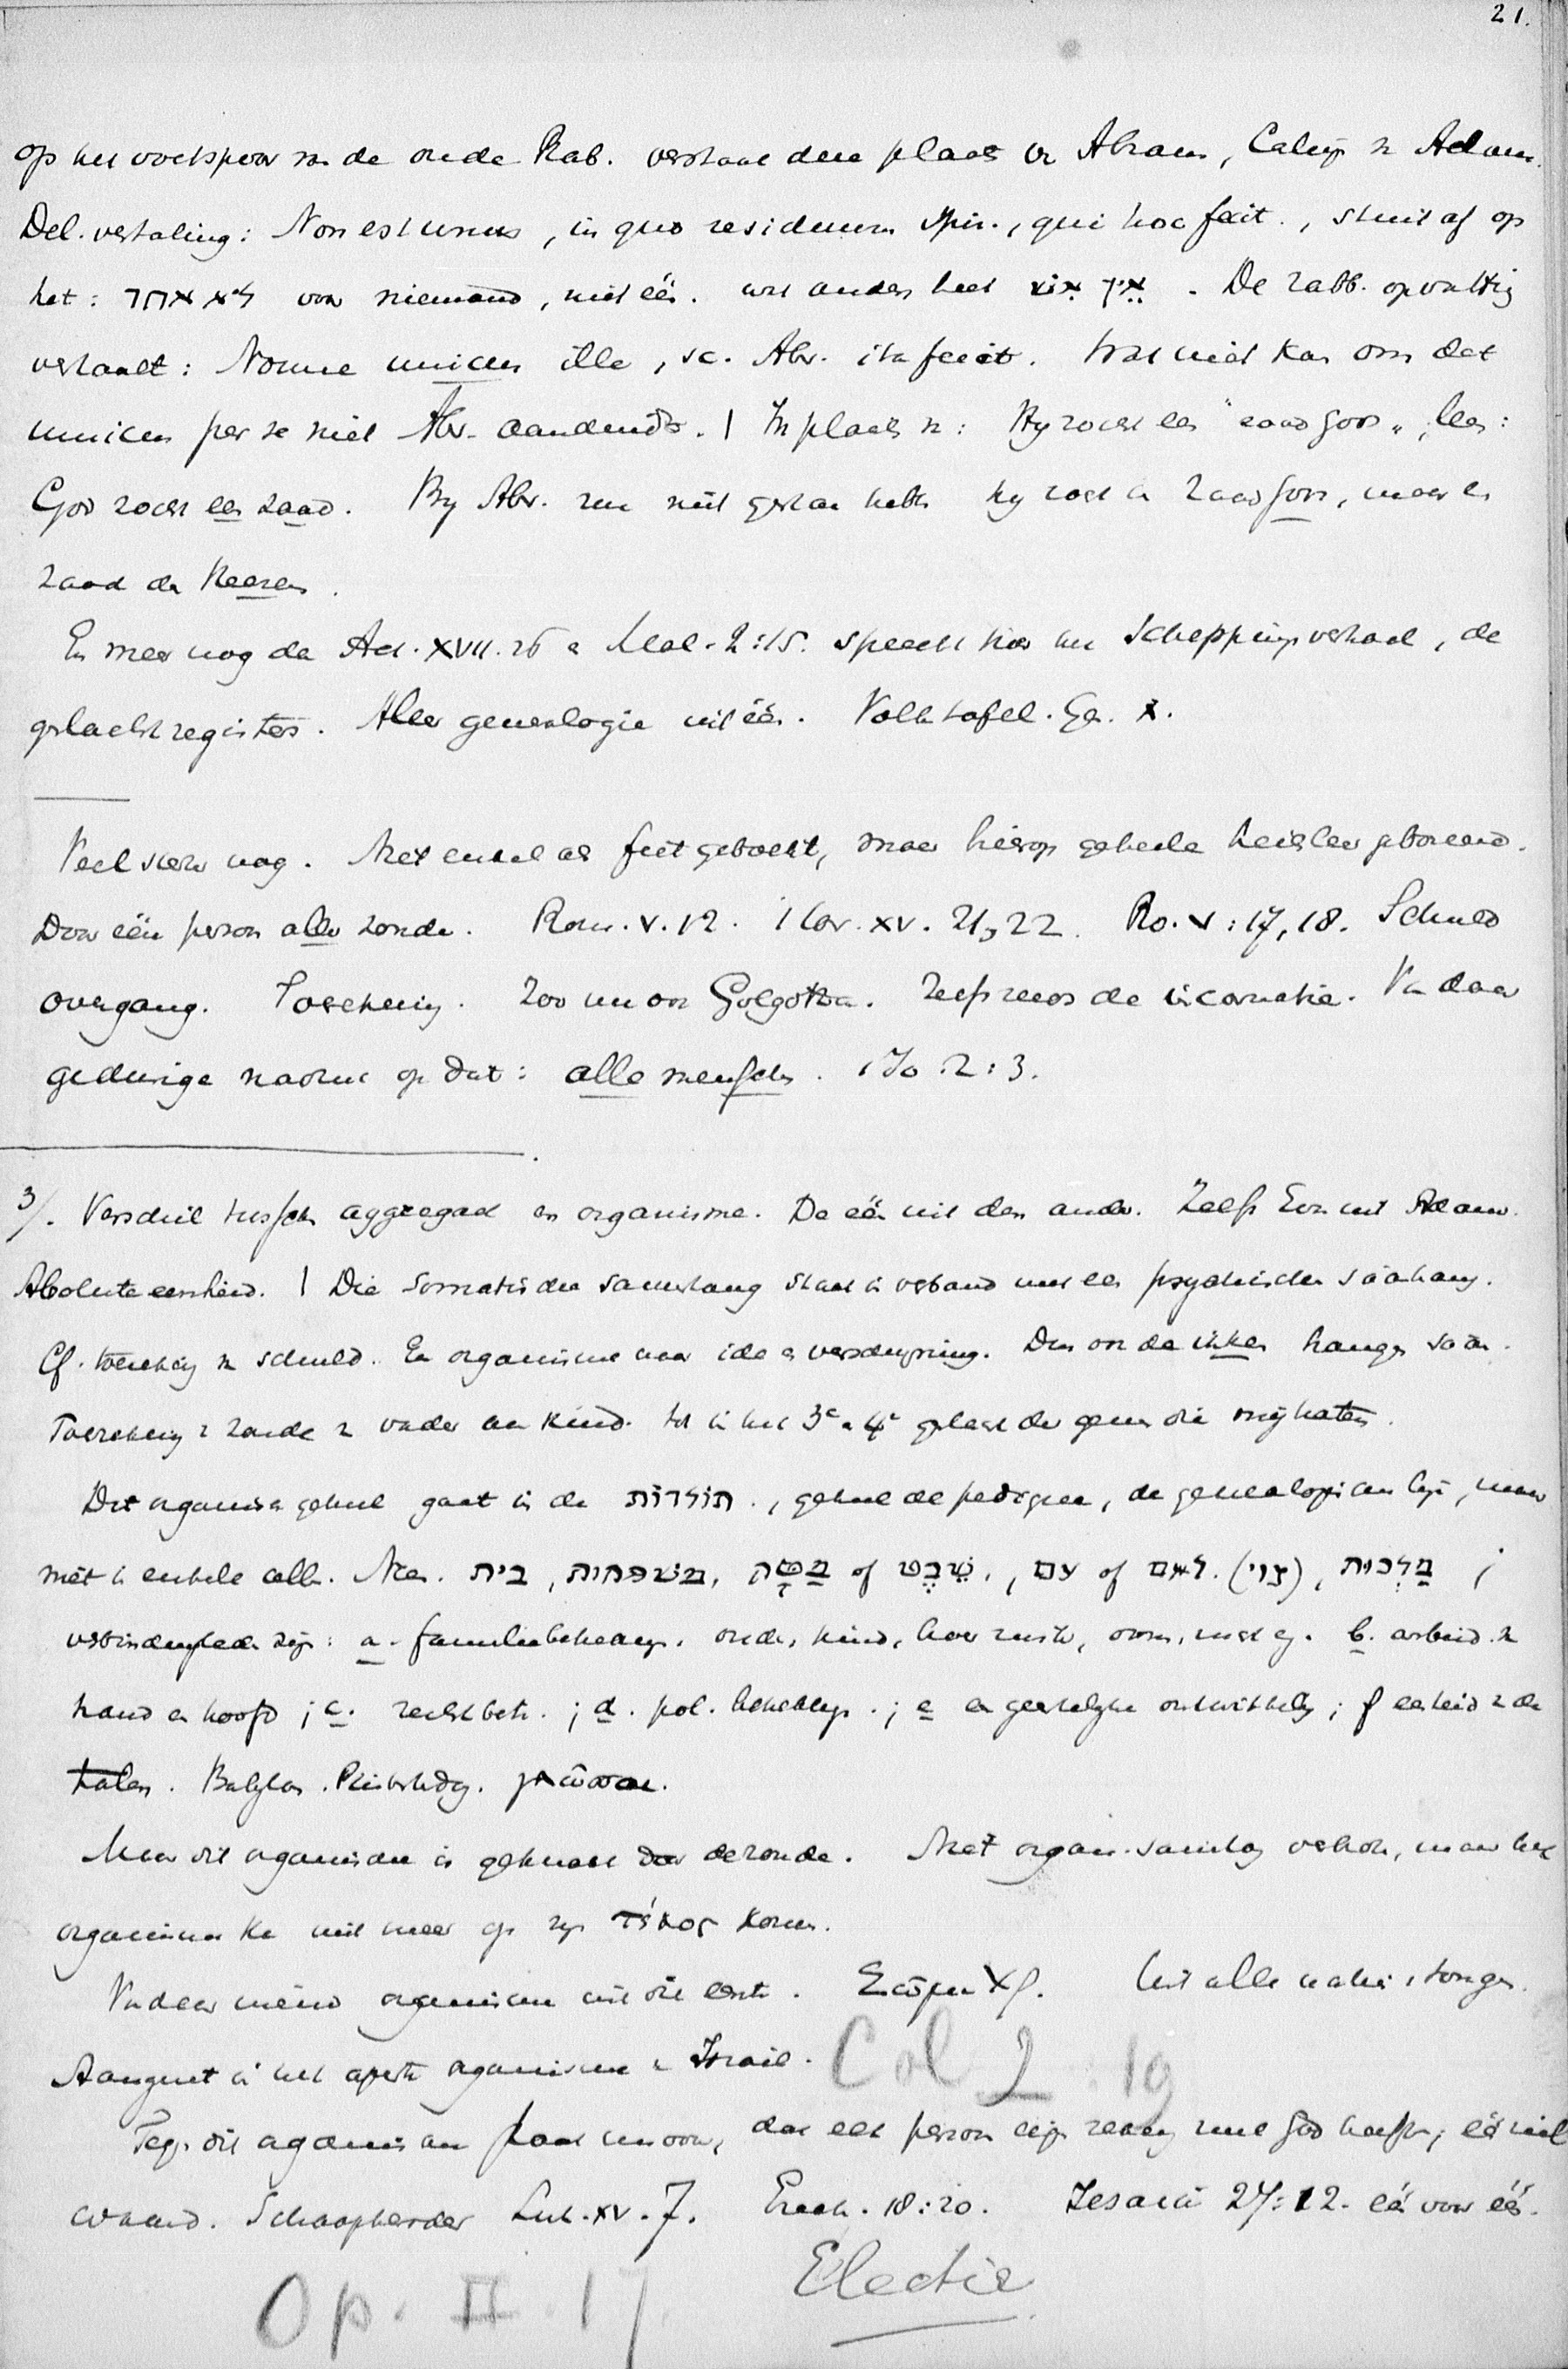 21.
op het voetspoor van de oude Rab. verstaat deze plaats v. Abram, Calvijn v. Adam.
Del. vertaling: Non est unus, in quo residuum spir., qui hoc fecit., stuit af op
het: לא אחד voor niemand, niet één. wat anders heet אין איש . De rabb. opvatting
vertaalt: Nonne unicus ille, sc. Abr. ita fecit. Wat niet kan om dat
unicus per se niet Abr. aanduidt. | In plaats v: Hy zoekt een "zaad Gods", lees:
God zoekt een zaad. By Abr. zou niet gestaan hebben hy zoekt een zaad Gods, maar een
zaad des Heeren.
En meer nog dan Act. XVII. 26 en Mal. 2:15. spreekt hier het Scheppingsverhaal, de
geslachtregisters. Aller genealogie uit één. Volkentafel. Gen. X.
Veel sterker nog. Niet enkel als feit geboekt, maar hierop geheele heilsleer gebouwd.
Door één persoon aller zonde. Rom. V. 12. 1 Cor. XV. 21, 22. Ro. V: 17, 18. Schuld
overgang. Toerekening. Zoo nu ook Golgotha. Zelfs reeds de incarnatie. Van daar
gedurige nadruk op dat: alle menschen. 1 Jo. 2:3.
3/. Verschil tusschen aggregaat en organisme. De één uit den ander. Zelfs Eva uit Adam.
Absolute eenheid. | Die somatische samenhang staat in verband met een psychischen samenhang.
Cf. toerekening van schuld. Een organisme naar idee en verschijning. Dus ook de ikken hangen saam.
Toerekening v zonde v vader aan kind. tot in het 3e en 4e geslacht dergenen die mij haten.
Dit organisch geheel gaat in de תולדות., geheel de pedigree, de genealogischen lijn, maar
niet in enkele cell. Nee. בית, משפחות, מַטֶּה of שֵׁבֶט., עם of לאם. (גוי), מַלְכוּת ;
verbindingsleden zijn: a. familiebetrekking. ouders, kind, broer zuster, oom, enz. b. arbeid v
hand en hoofd ; c. rechtsbetr. ; d. pol. betrekking. ; e en geestelijke ontwikkeling ; f eenheid v de
talen. Babylon. Pinksterdag. γλῶσσαι.
Maar dit organisme is gekneusd door de zonde. Niet organ. samenhang verbroken, maar het
organisme kan niet meer op zijn τέλος komen.
Vandaar nieuw organisme uit dit eerste. Σῶμα Χρ. Uit alle natiën, tongen.
Aangeduid in het aparte organisme v Israël. Col 2 . 19
Tegen dit organisme staat nu over, dat elk persoon eigen rekening met God heeft; één ziel
waard. Schaapherder Luk. XV. 7. Ezech. 18:20. Jesaia 27:12. één voor één.
Op. II. 17 Electie